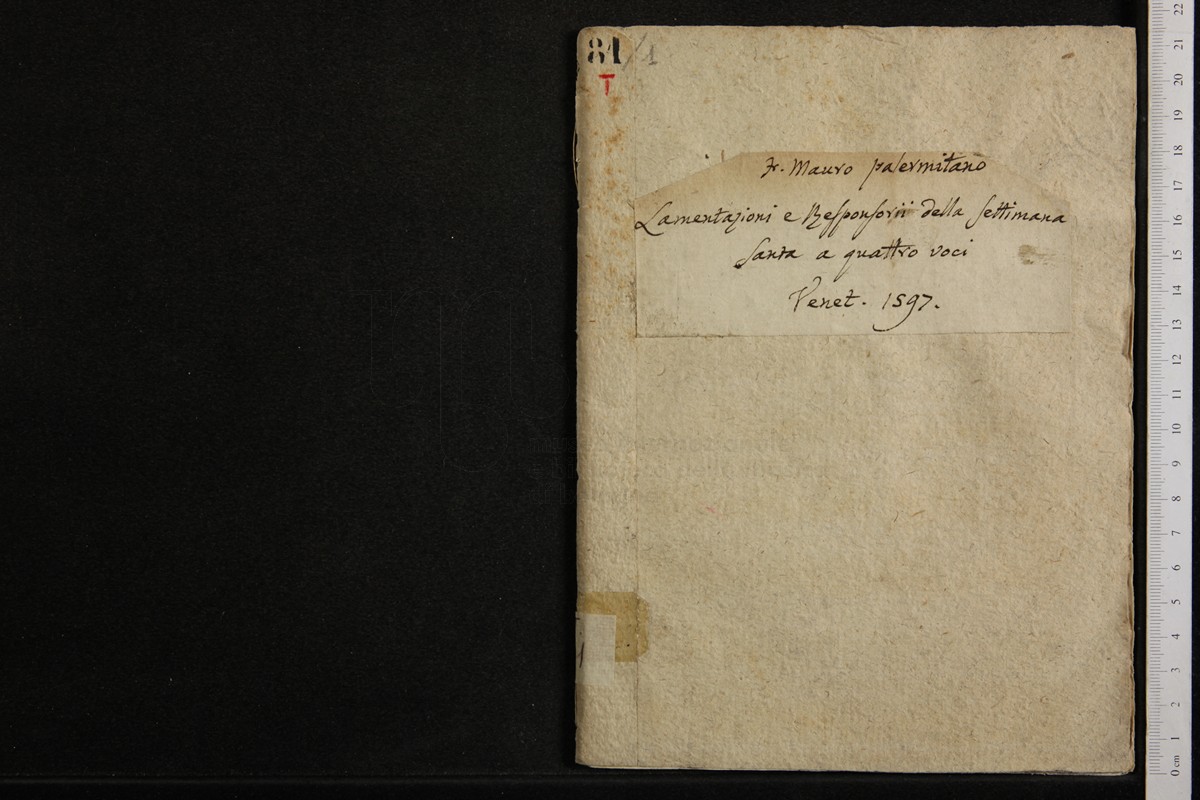 81/1
T
Fr. Mauro palermitano
Lamentazioni e Responsorii della Settimana
Santa a quattro voci
Venet. 1597.
22
21
20
19
18
17
16
15
14
13
12
11
10
9
8
7
6
5
4
3
2
1
0 cm